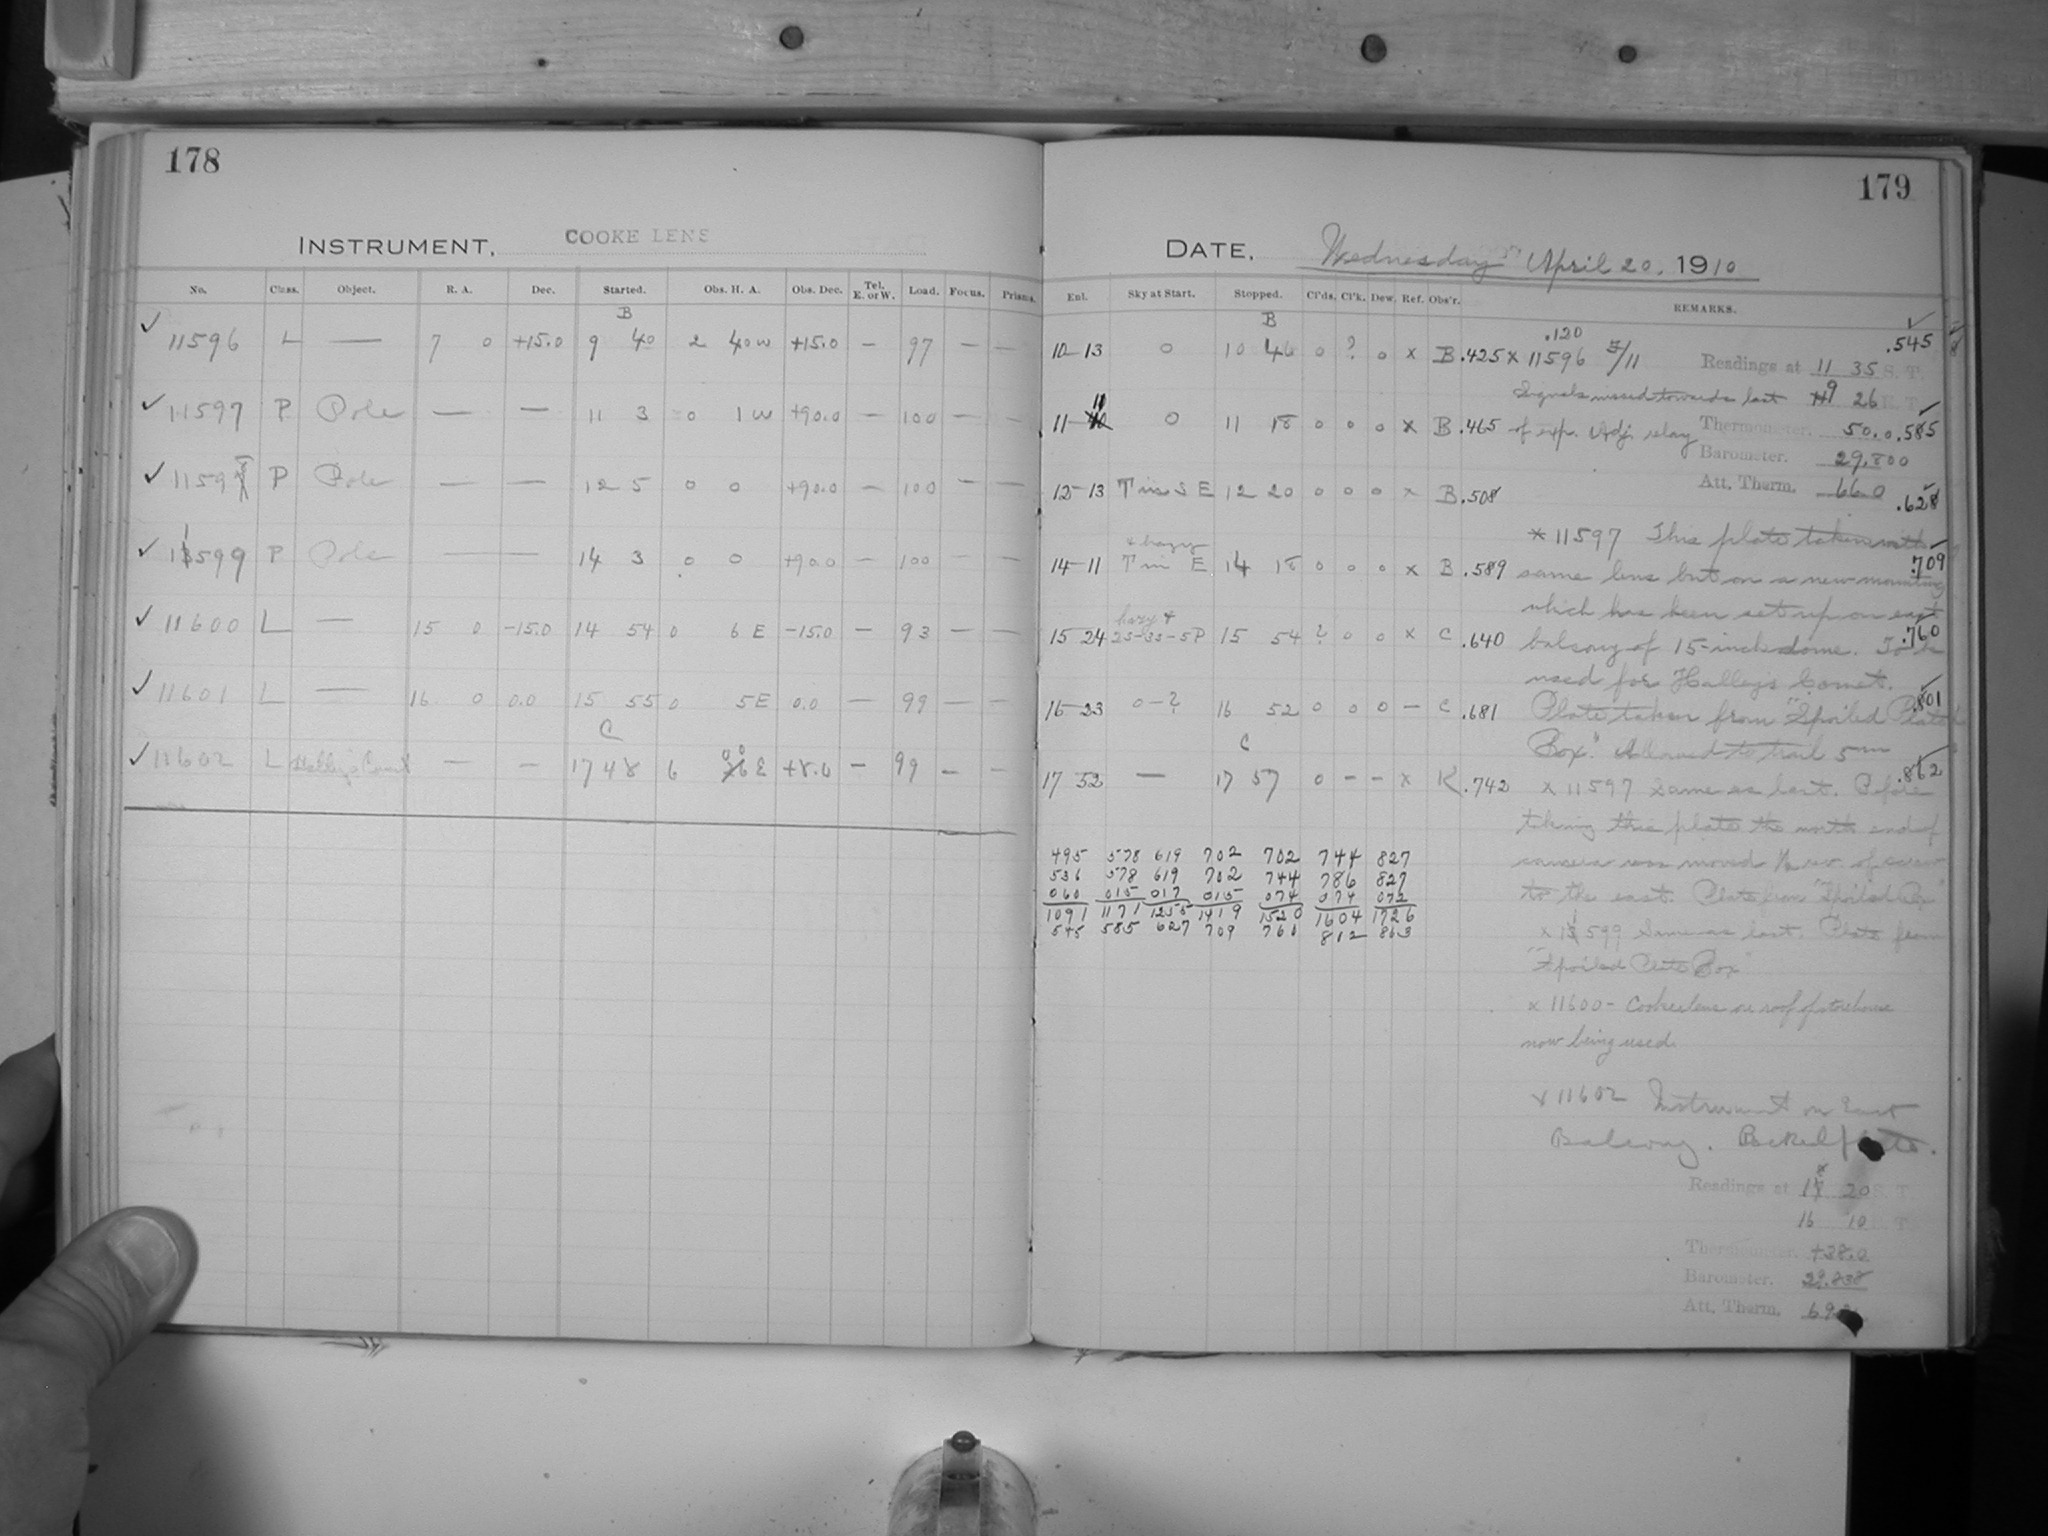 178
INSTRUMENT, COOKE LENS
No. Class. Object. R. A. Dec. Started. Obs. H. A. Obs. Dec. Tel. E. or W. Load. Focus. Prisms.
B
✓ 11596 L — 7 0 +15.0 9 40 2 40 W +15.0 — 97 — —
✓ 11597 P Pole — — 11 3 0 1 W +90.0 — 100 — —
✓ 11598 P Pole — — 12 5 0 0 +90.0 — 100 — —
✓ 11599 P Pole — — 14 3 0 0 +90.0 — 100 — —
✓ 11600 L — 15 0 -15.0 14 54 0 6 E -15.0 — 93 — —
✓ 11601 L — 16 0 0.0 15 55 0 5 E 0.0 — 99 — —
C
✓ 11602 L Halley's Comet — — 17 48 6 E +8.0 — 99 — —
179
DATE, Wednesday April 20, 1910
Ent. Sky at Start. Stopped. Cl'ds. Cl'k. Dew. Ref. Obs'r. REMARKS.
B
10-13 0 10 46 0 ? 0 x B .425
11-11 0 11 18 0 0 0 x B .465
12-13 T in S E 12 20 0 0 0 x B .508
& hazy
14-11 T in E 14 18 0 0 0 x B .589
hazy +
15 24 25-33-5P 15 54 ? 0 0 x C .640
16-23 0-? 16 52 0 0 0 — C .681
C
17 52 — 17 57 0 — — x K .742
495 578 619 702 702 744 827
536 578 619 702 744 786 827
060 015 017 015 074 074 072
1091 1171 1255 1419 1520 1604 1726
545 585 627 709 760 802 863
.120
x 11596 .545
Readings at 11 35 S. T.
Signals missed towards last 9 26
of exp. Adj. relay Thermometer. 50.0 .585
Barometer. 29.800
Att. Therm. 66.0 .628
* 11597 This plate taken with
.709
same lens but on a new mounting
which has been set up on east
.760
balcony of 15-inch dome. To be
used for Halley's Comet.
.801
Plate taken from "Spoiled Plate
Box." Allowed to trail 5m
.862
x 11597 Same as last. Before
taking this plate the north end of
camera was moved ½ rev. of screw
to the east. Plate from "Spoiled Box"
x 11599 Same as last. Plate from
"Spoiled Plate Box"
x 11600 - Cooke lens on roof of storehouse
now being used.
x 11602 Instrument on East
Balcony. Backed plate.
Readings at 18 20 S. T.
16 10 T.
Thermometer. +38.0
Barometer. 29.838
Att. Therm. 69